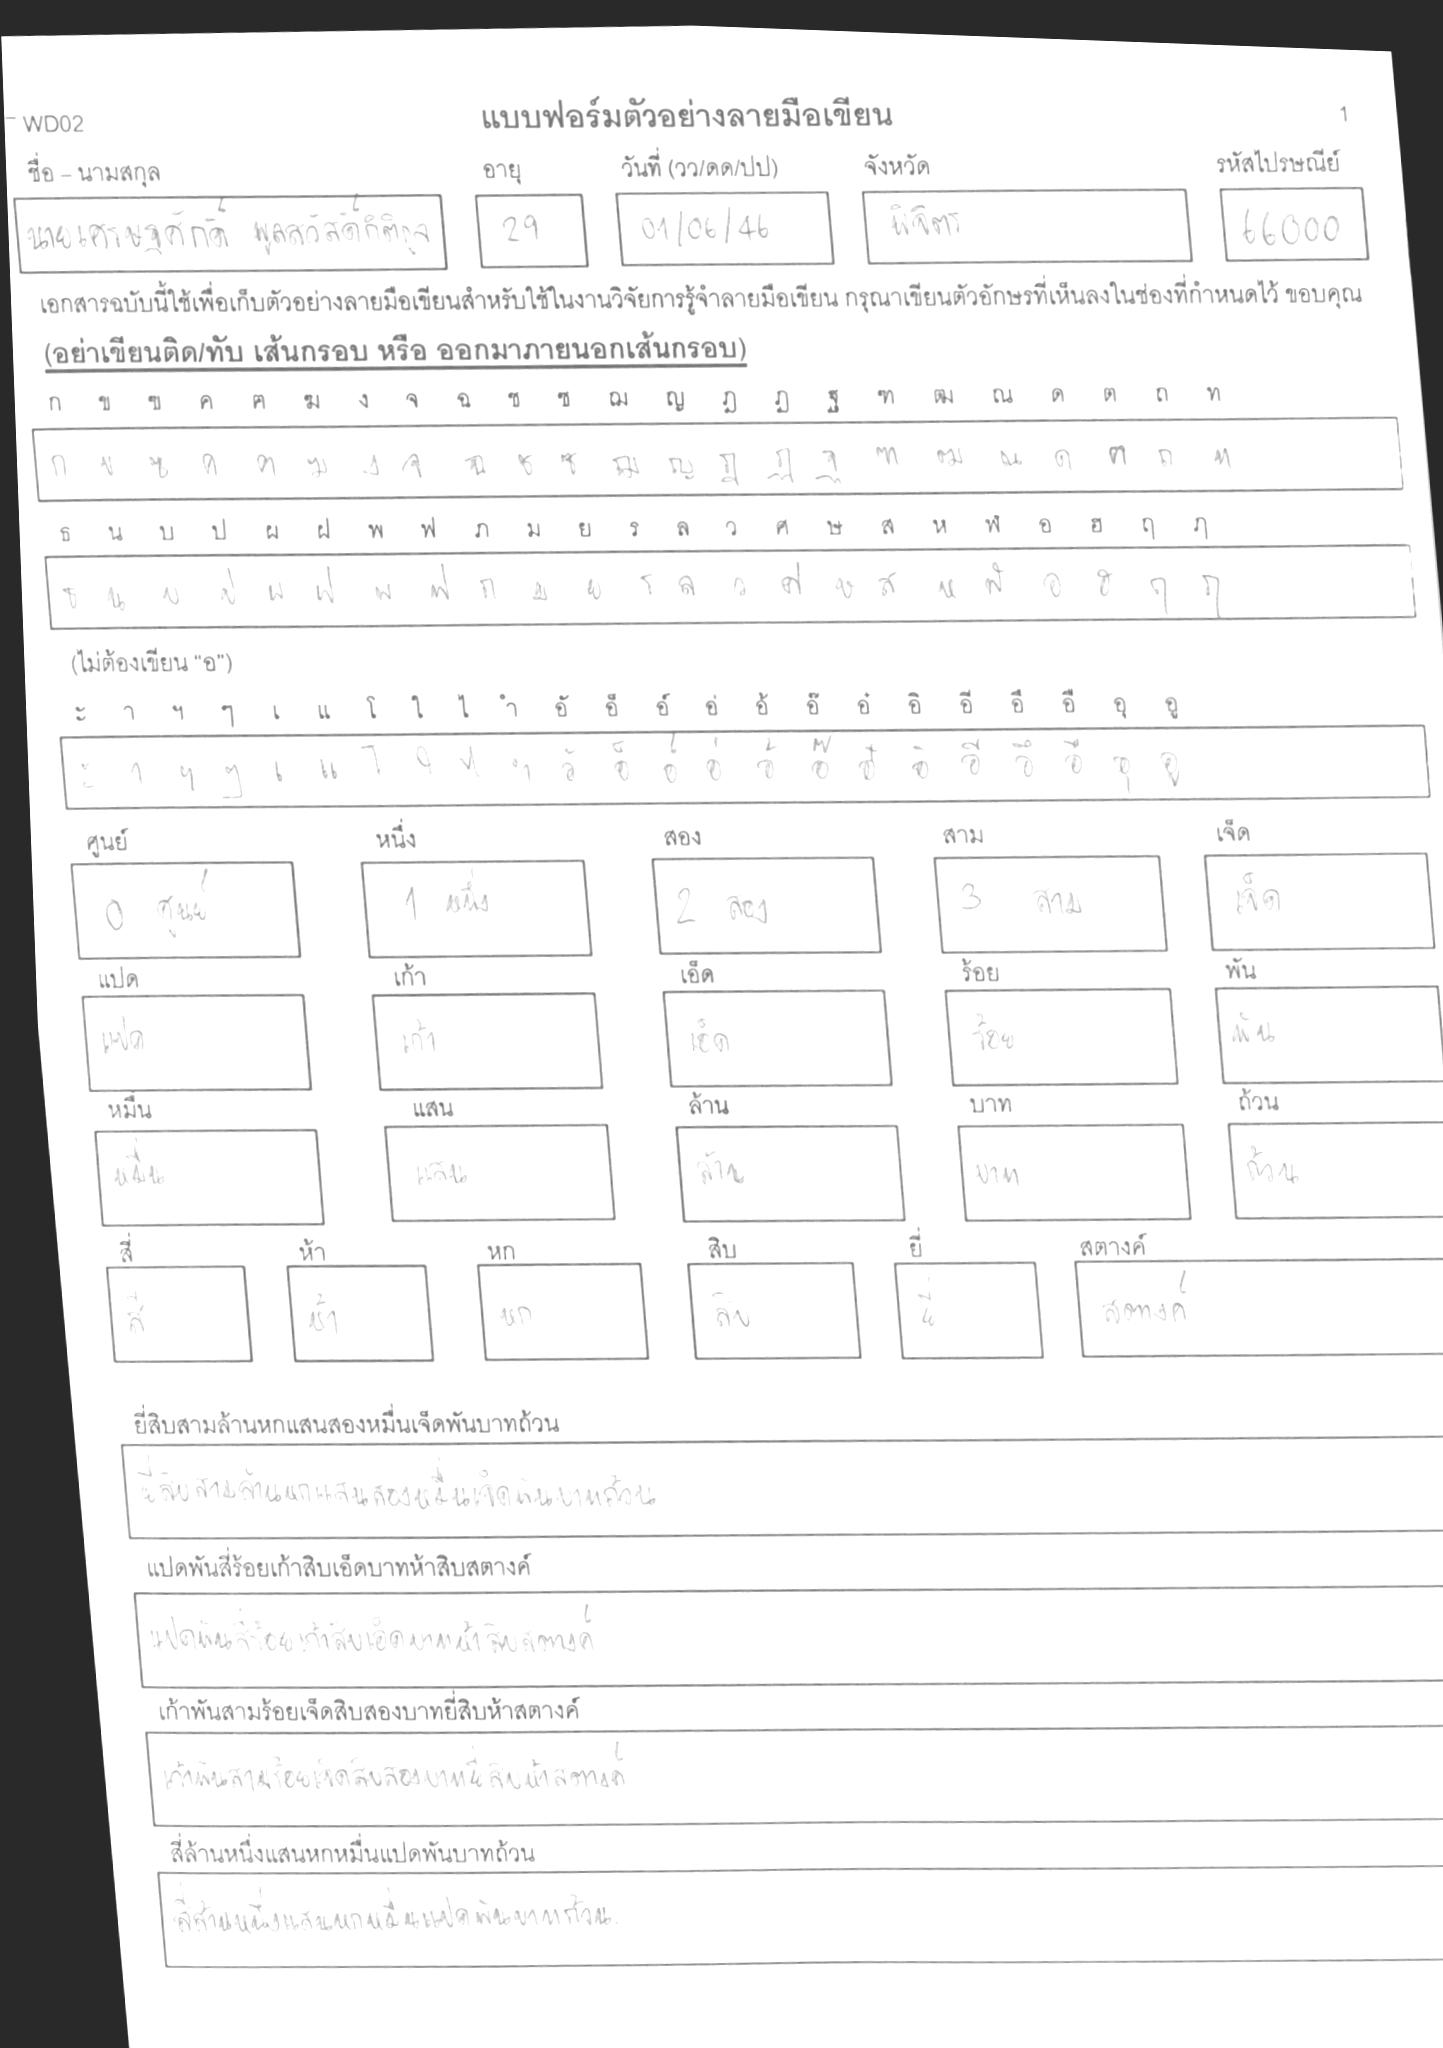 WD02 แบบฟอร์มตัวอย่างลายมือเขียน 1
ชื่อ – นามสกุล อายุ วันที่ (วว/ดด/ปป) จังหวัด รหัสไปรษณีย์
นายเศรษฐศักดิ์ พูลสวัสดิ์กิติกูล 29 01/06/46 พิจิตร 66000
เอกสารฉบับนี้ใช้เพื่อเก็บตัวอย่างลายมือเขียนสำหรับใช้ในงานวิจัยการรู้จำลายมือเขียน กรุณาเขียนตัวอักษรที่เห็นลงในช่องที่กำหนดไว้ ขอบคุณ
(อย่าเขียนติด/ทับ เส้นกรอบ หรือ ออกมาภายนอกเส้นกรอบ)
ก ข ฃ ค ฅ ฆ ง จ ฉ ช ซ ฌ ญ ฎ ฏ ฐ ฑ ฒ ณ ด ต ถ ท
ก ข ฃ ค ฅ ฆ ง จ ฉ ช ซ ฌ ญ ฎ ฏ ฐ ฑ ฒ ณ ด ต ถ ท
ธ น บ ป ผ ฝ พ ฟ ภ ม ย ร ล ว ศ ษ ส ห ฬ อ ฮ ฤ ฦ
ธ น บ ป ผ ฝ พ ฟ ภ ม ย ร ล ว ศ ษ ส ห ฬ อ ฮ ฤ ฦ
(ไม่ต้องเขียน "อ")
ะ า ฯ ๆ เ แ โ ใ ไ ำ อั อ็ อ์ อ่ อ้ อ๊ อ๋ อิ อี อึ อื อุ อู
ะ า ฯ ๆ เ แ โ ใ ไ ำ อั อ็ อ์ อ่ อ้ อ๊ อ๋ อิ อี อึ อื อุ อู
ศูนย์ หนึ่ง สอง สาม เจ็ด
0 ศูนย์ 1 หนึ่ง 2 สอง 3 สาม เจ็ด
แปด เก้า เอ็ด ร้อย พัน
แปด เก้า เอ็ด ร้อย พัน
หมื่น แสน ล้าน บาท ถ้วน
หมื่น แสน ล้าน บาท ถ้วน
สี่ ห้า หก สิบ ยี่ สตางค์
สี่ ห้า หก สิบ ยี่ สตางค์
ยี่สิบสามล้านหกแสนสองหมื่นเจ็ดพันบาทถ้วน
ยี่สิบสามล้านหกแสนสองหมื่นเจ็ดพันบาทถ้วน
แปดพันสี่ร้อยเก้าสิบเอ็ดบาทห้าสิบสตางค์
แปดพันสี่ร้อยเก้าสิบเอ็ดบาทห้าสิบสตางค์
เก้าพันสามร้อยเจ็ดสิบสองบาทยี่สิบห้าสตางค์
เก้าพันสามร้อยเจ็ดสิบสองบาทยี่สิบห้าสตางค์
สี่ล้านหนึ่งแสนหกหมื่นแปดพันบาทถ้วน
สี่ล้านหนึ่งแสนหกหมื่นแปดพันบาทถ้วน